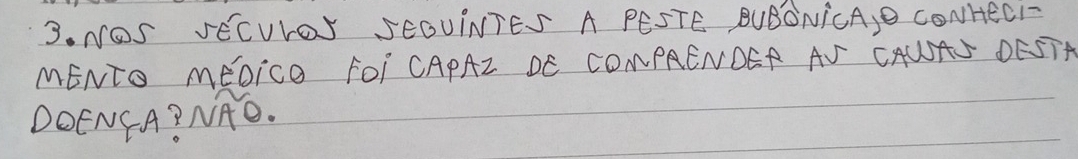 3. NOS SÉCULOS SEGUINTES A PESTE BUBÔNICA, O CONHECI-
MENTO MÉDICO FOI CAPAZ DE COMPAENDER AS CAUSAS DESTA
DOENÇA? NÃO.